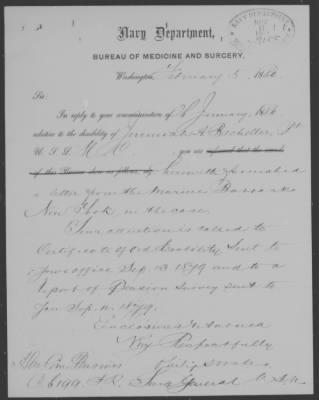 Navy Department,
BUREAU OF MEDICINE AND SURGERY,
Washington, February 5, 1886
Sir:
In reply to your communication of 8 January, 1886
relative to the disability of Jeremiah A.
U.S. M.C., you are informed that the records
of this Bureau show as follows, viz: herewith furnished
a letter from the Marine Barracks
New York in the case.
Your attention is called to
Certificate of Ord Disability sent to
your office Sep. 13 1879 and to a
Report of Pension Survey sent to
you Sep. 11. 1879.
Enclosures returned
Very Respectfully
Hon Com. Pensions
Surg General U.S.N.